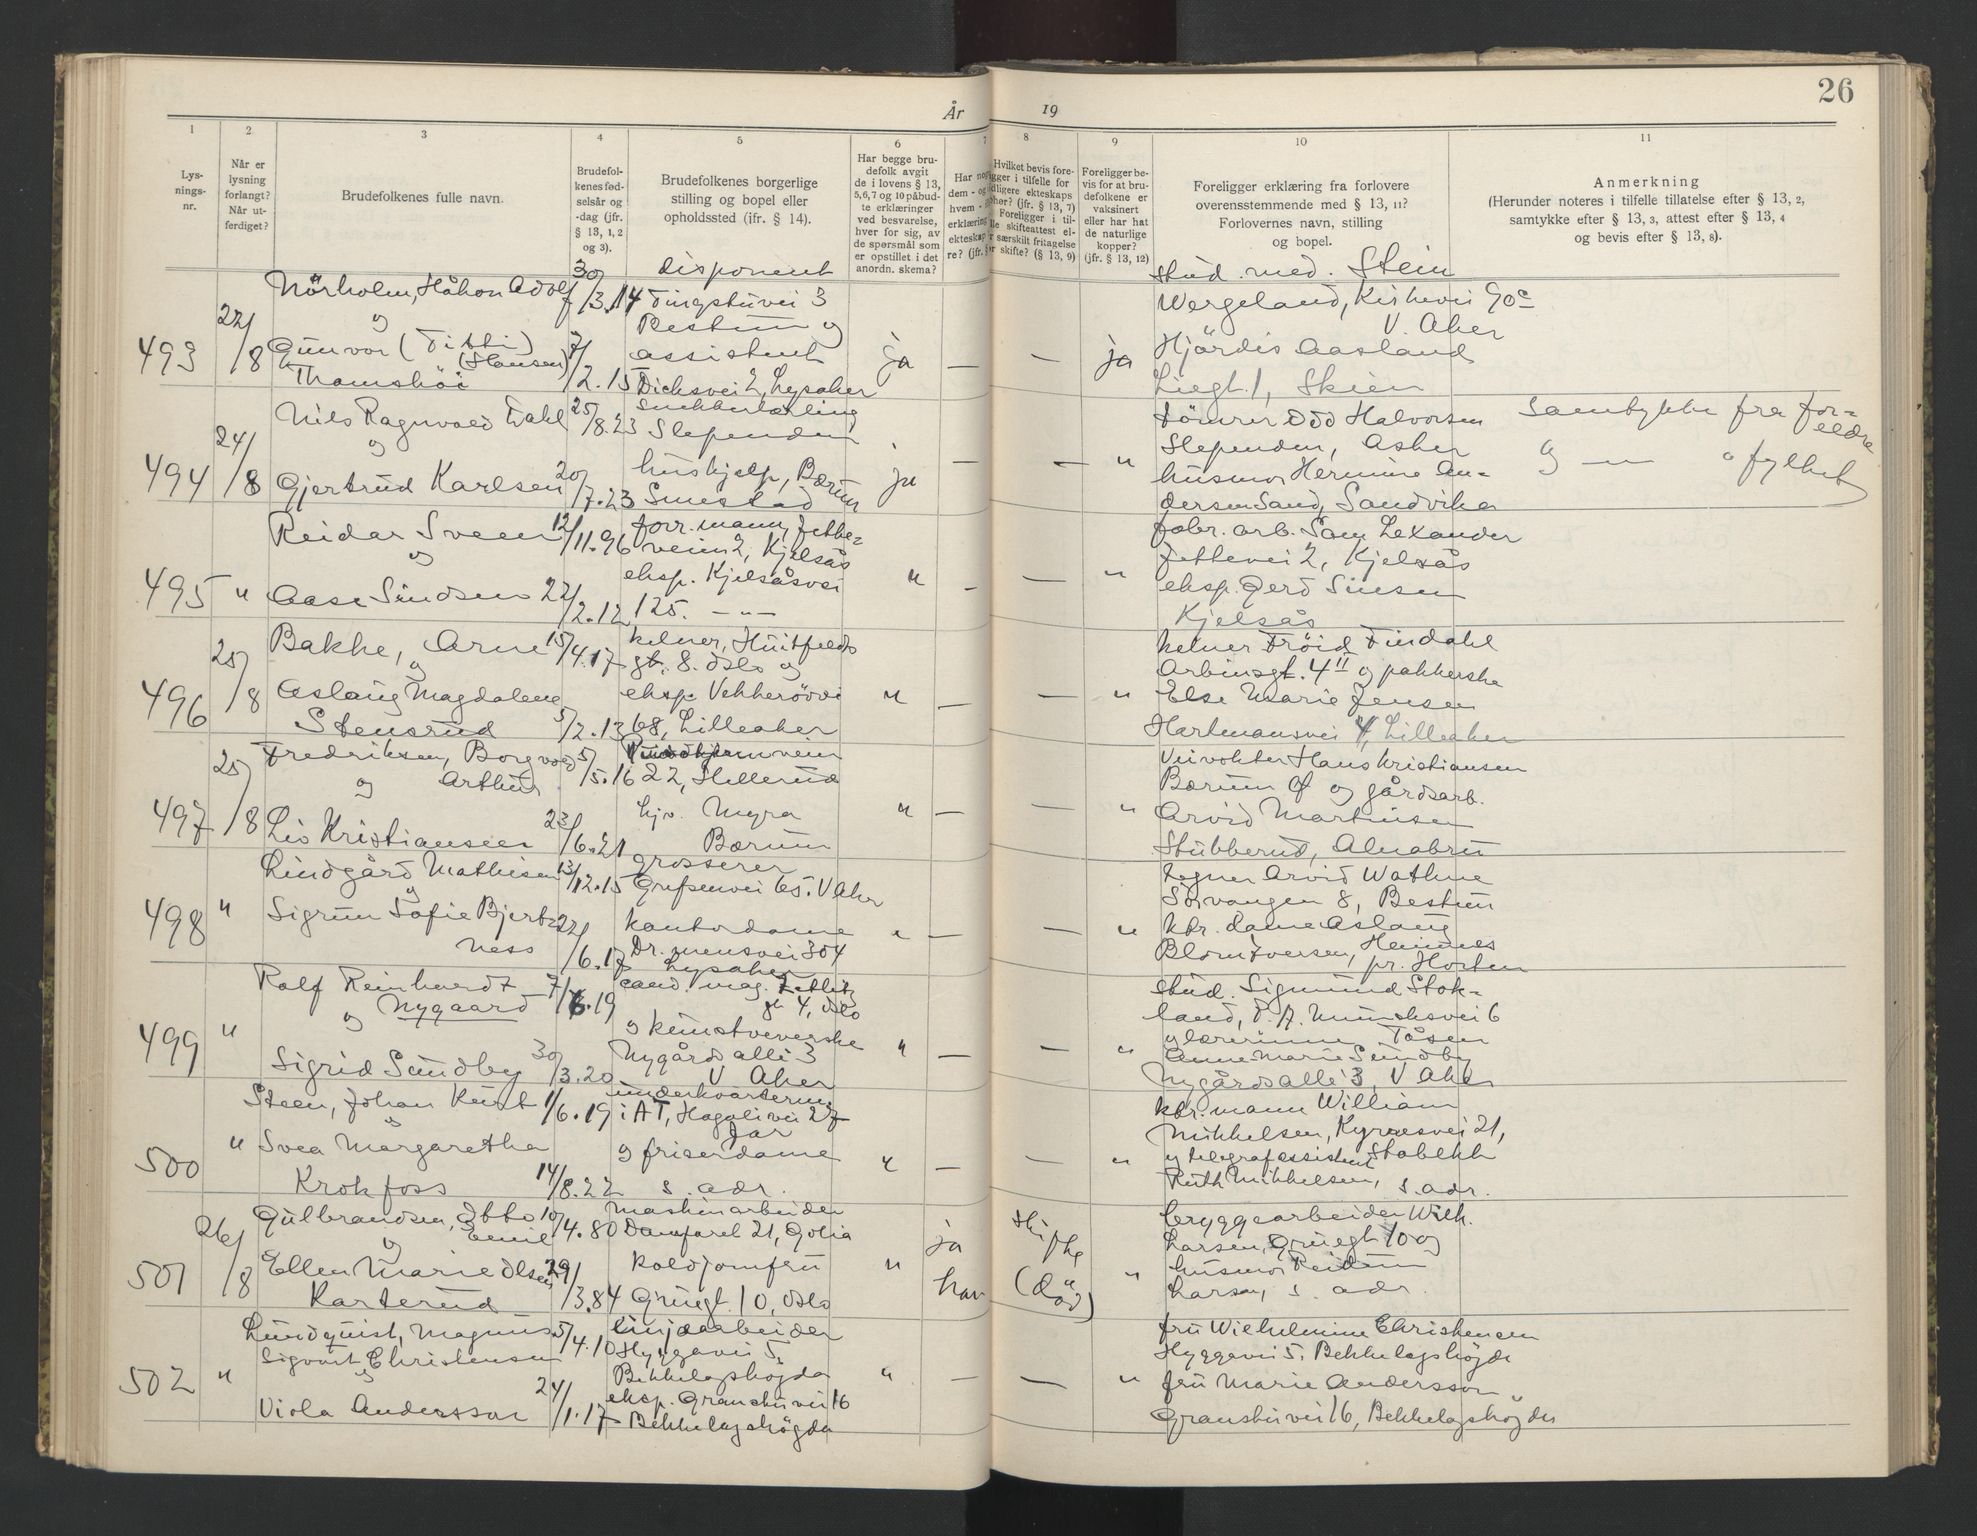 26
År 19
1 2 3 4 5 6 7 8 9 10 11
Lys-
nings-
nr.
Når er
lysning
forlangt?
Når ut-
ferdiget?
Brudefolkenes fulle navn.
Brudefol-
kenes fød-
selsår og
-dag (jfr.
§ 13, 1, 2
og 3).
Brudefolkenes borgerlige
stilling og bopel eller
opholdssted (ifr. § 14).
Har begge bru-
defolk avgit
de i lovens § 13,
5, 6, 7 og 10 påbud-
te erklæringer
ved besvarelse,
hver for sig, av
de spørsmål som
er opstillet i det
anordn. skema?
Foreligger be-
vis for at bru-
defolkene er
vaksinert
eller har hat
de naturlige
kopper?
(jfr. § 13, 12)
Foreligger erklæring fra forlovere
overensstemmende med § 13, 11?
Forlovernes navn, stilling
og bopel.
Anmerkning
(Herunder noteres i tilfelle tillatelse efter § 13, 2,
samtykke efter § 13, 3, attest efter § 13, 4
og bevis efter § 13, 8).
493
22/8
Nörholm, Håkon Adolf
og
Gunvor (Titti)
(Hansen)
Thomshöi
30/3.14
7/2.15
disponent
Tingstuvei 3
Bestum og
assistent
Dicksvei 2, Lysaker
ja — — ja
stud. med. Stein
Wergeland, Kirkevei 90c
V. Aker
Hjördis Aasland
Liegt. 1, Skien
494
24/8
Nils Ragnvald Dahl
og
Gjertrud Karlsen
25/8.23
20/7.23
snekkerlærling
Slependen
hushjelp, Bærum
Smestad
ja — — "
tömrer Odd Halvorsen
Slependen, Asker
husmor Hermine An-
dersen Sand, Sandvika
Samtykke fra for-
eldre
og — " fylket
495 "
Reidar Sveen
og
Aase Sundsen
12/11.96
22/2.12
forr. mann, Jette-
veien 2, Kjelsås
eksp. Kjelsåsvei
125. — " —
" — — "
fabr. arb. Sam Lexander
Jettevei 2, Kjelsås
eksp. Gerd Sinsen
Kjelsås
496
25/8
Bakke, Arne
og
Aslaug Magdalene
Stensrud
15/4.17
5/2.13
kelner, Huitfelds
gt. 8. Oslo og
eksp. Vekkerövei
68, Lilleaker
" — — "
kelner Fröid Tindahl
Arbinsgt. 4 II og pakkerske
Else Marie Jensen
Hartmansvei 4, Lilleaker
497
25/8
Fredriksen, Borgvald
og Arthur
Liv Kristiansen
5/5.16
23/6.21
22, Hellerud
hjv. Myra
Bærum
" — — "
Veivokter Hans Kristiansen
Bærum og gårdsarb.
Arvid Martinsen
Stubberud, Alnabru
498 "
Lindgård Mathisen
og
Sigrun Sofie Bjerke
ness
13/12.15
22/6.17
grosserer
Grefsenvei 65. V Aker
kontordame
Dr.mensvei 304
Lysaker
" — — "
tegner Arvid Wathne
Sörvangen 8, Bestum
ktr. dame Aslaug
Blom Iversen, Heimnes
pr. Horten
499 "
Rolf Reinhardt
Nygaard
og
Sigrid Sundby
7/6.19
30/3.20
cand. mag. Zetlitz
gt 4, Oslo
og kunstveverske
Nygårds allé 3
V Aker
" — — "
stud. Sigmund Stok-
land, P. A. Munchsvei 6
og lærerinne Tåsen
Anne-Marie Sundby
Nygårds allé 3, V Aker
500 "
Steen, Johan Kurt
og
Svea Margaretha
Krokfoss
1/6.19
14/8.22
underkvarterm.
i AT, Hagalivei 27
Jar
og friserdame
s. adr.
" — — "
ktr. mann William
Mikkelsen, Kyrresvei 21,
og telegrafassistent Stabekk
Ruth Mikkelsen, s. adr.
501
26/8
Gulbrandsen, Otto
Emil
og
Ellen Marie Olsen
Karterud
10/4.80
29/3.84
Maskinarbeider
Damfaret 21, Golia
koldjomfru
Grüegt. 10, Oslo
" ja
han
skifte
(död)
"
bryggearbeider Wilh.
Larsen, Grüegt 10 og
husmor Reidun
Larsen, s. adr.
502 "
Lundquist, Magnus
Sigvart Christensen
og
Viola Andersson
5/4.10
24/1.17
linjearbeider
Hyggevei 5,
Bekkelagshögda
eksp. Granstuvei 16
Bekkelagshögda
" — — "
fru Wilhelmine Christensen
Hyggevei 5. Bekkelagshögda
fru Marie Andersson
Granstuvei 16, Bekkelagshögda